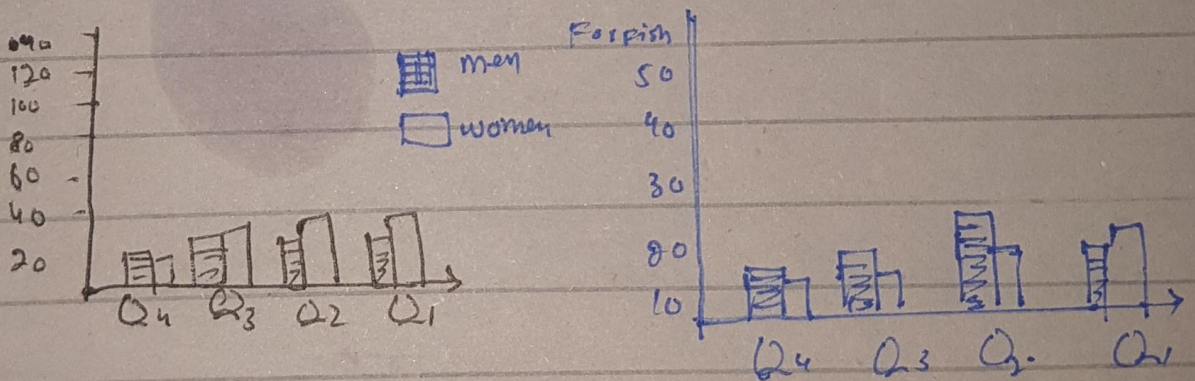 120
100
80
60
40
20
Q4 Q3 Q2 Q1
men
women
For fish
50
40
30
20
10
Q4 Q3 Q2 Q1